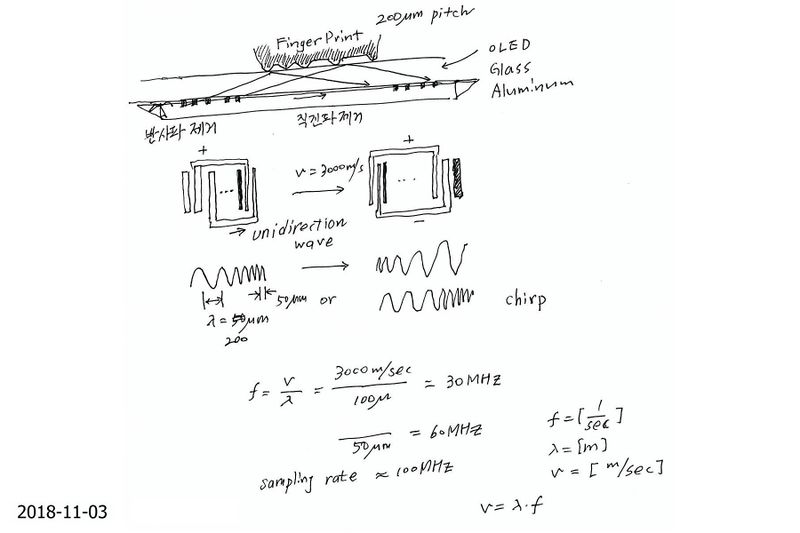 200μm pitch
Finger Print
oLED
Glass
Aluminum
반사파 제거
직진파제거
+
v = 3000m/s
+
...
...
→ unidirection
wave
-
50μm
or
chirp
λ = 50μm
200
f = v/λ = 3000m/sec / 100μ = 30MHZ
/ 50μm = 60MHZ
f = [1/sec]
λ = [m]
v = [m/sec]
sampling rate ≈ 100MHZ
v = λ·f
2018-11-03